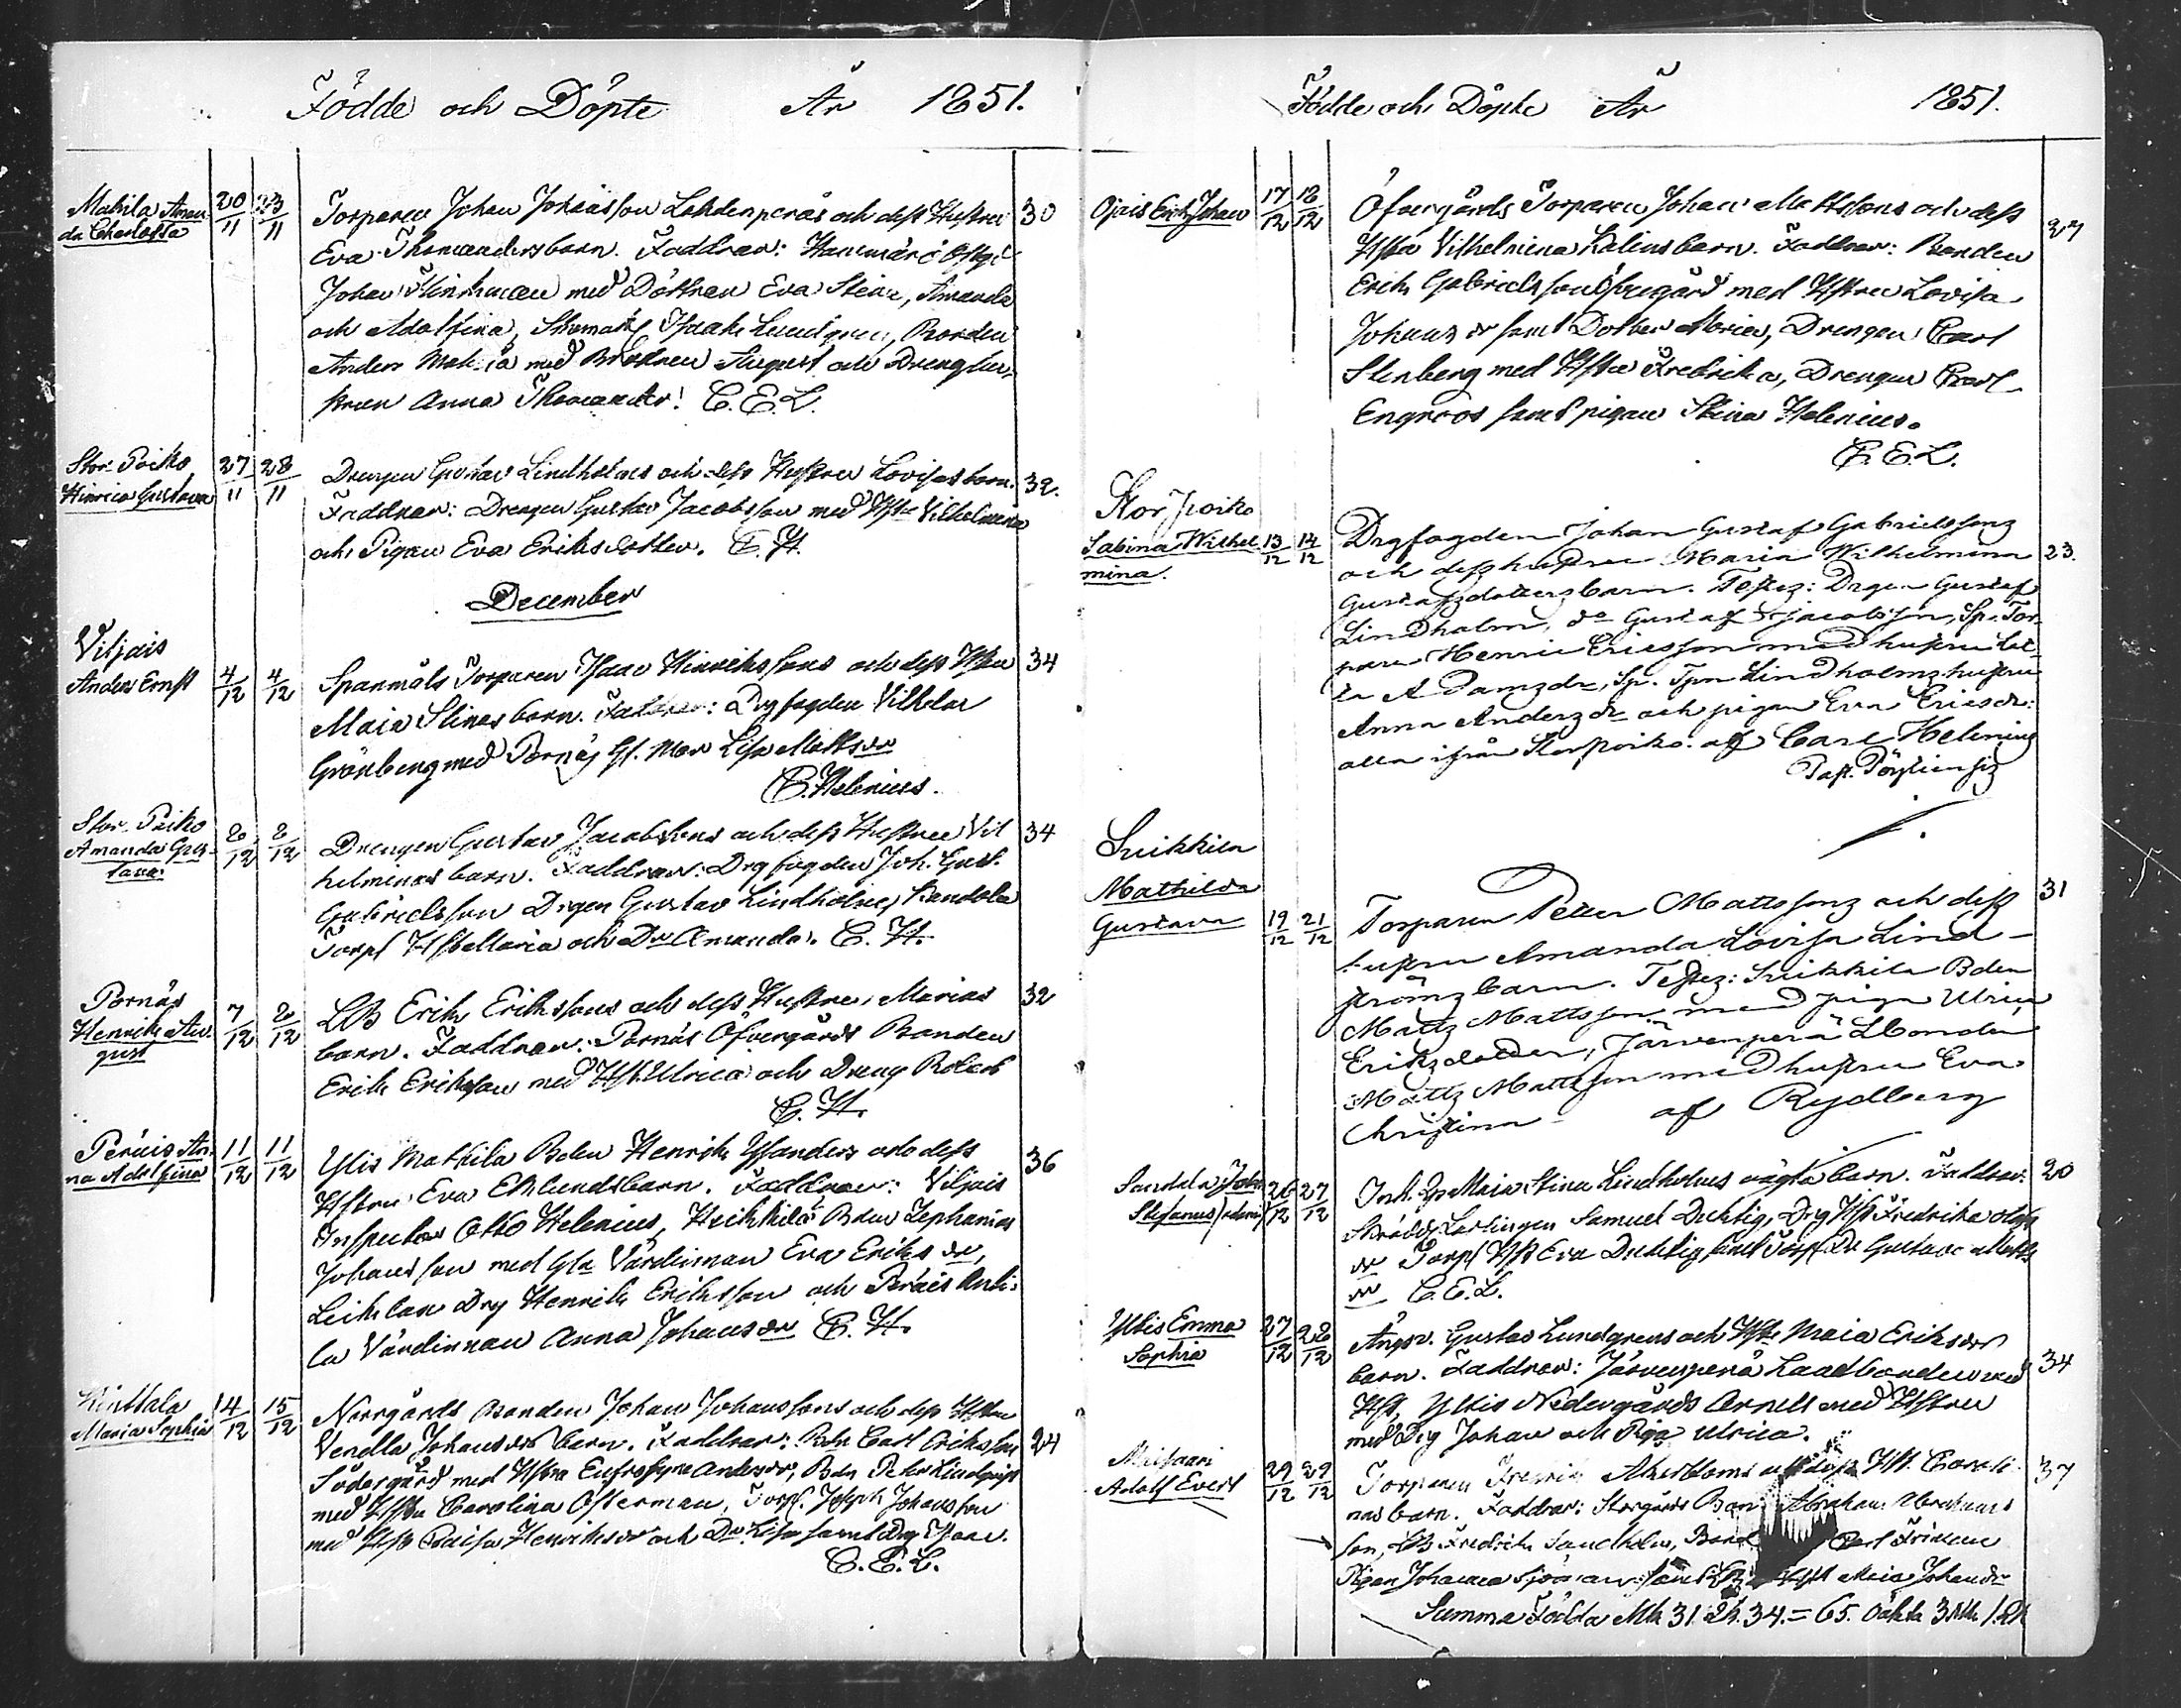 Födde och Döpte År 1851.
Mahila Aman-
da Charlotta
20/11 23/11
Torparen Johan Johansson Lehdenperäs och dess Hustru 30
Eva Thomandersbarn. Faddrar:
Johan med Döttren Eva Stina, Amanda
och Adolfina, Isak Lundgren, Bonden
Anders med Brodren August och Dreng hu-
strun Anna Thomander. C.E.L.
Stor-Poiko
Hinrica Gustava
27/11 28/11
Drengen Gustav Lindholms och dess Hustru Lovisas barn. 32.
Faddrar: Drengen Gustav Jacobsson med Hstr Vilhelmina
och Pigan Eva Eriksdotter. C. H.
December
Viljais
Anders Ernst
4/12 4/12
Spanmåls Torparen Isaac Hinrikssons och dess Hstru 34
Maia Stinas barn. Faddrar: Drgfogden Vilhelm
Grönberg med Pornäs Gl. Mor Lisa Matts dr
C. Helenius.
Stor-Poiko
Amanda Gus-
tava.
8/12 8/12
Drengen Gustav Jacobssons och dess Hustru Vil 34
helminas barn. Faddrar: Drgfogden Joh. Gust.
Gabrielsson Drgen Gustav Lindholm, Kandola
Torp Hst Maria och Dr Amanda. C. H.
Pornäs
Henrik Au-
gust
7/12 8/12
LB Erik Erikssons och dess Hustru Marias 32
barn. Faddrar: Pornäs Öfvergårds Bonden
Erik Eriksson med Hst Ulrica och Dreng Robert
C. H.
Peräis An-
na Adolfina
11/12 11/12
Ylis Mattila Bden Henrik Ysanders och dess 36
Hstru Eva Eklunds barn. Faddrar: Viljais
Inspector Otto Helenius, Heikkilä Bden Zephanias
Johansson med Gla Värdinnan Eva Eriks dr,
Leikilan Drg Henrik Eriksson och Peräis Antti-
la Värdinnan Anna Johans dr C. H.
Maria Sophia
14/12 15/12
Norrgårds Bonden Johan Johanssons och dess Hstru
Vendla Johans drs barn. Faddrar: Bdn Carl Eriksson 24
Södergård med Hstru Eufrosyne Anders dr, Bdn Petter Lindqvist
med Hstru Carolina Österman, Torp. Joseph Johansson
med Hst Caisa Henriks dr och Dr Lisa samt Drg Isaac.
C.E.L.
Födde och Döpte År 1851.
Ojais Erik Johan
17/12 18/12
Öfvergårds Torparen Johan Mattssons och dess
Hstru Vilhelmina Kalins barn. Faddrar: Bonden 27
Erik Gabrielsson Öfvergård med Hstru Lovisa
Johans dr samt Dotter Maria, Drengen Carl
Stenberg med Hstru Fredrika, Drengen Carl
Engroos samt pigan Stina Helenius.
C.E.L.
Stor Poiko
Sabina Wilhel
mina.
13/12 14/12
Drgfogden Johan Gustaf Gabrielssons
och dess hustru Maria Wilhelmina 23.
Gustafsdotters barn. Testes: Drgen Gustaf
Lindholm, do Gustaf Jacobsson, Sp. Tor-
paren Henric Ericsson med hustru Lot-
ta Adamsdr, Sp. Tprn Lindholms hustru
Anna Andersdr och pigan Eva Ericsdr:
alla ifrån Storpoiko. af Carl Helenius
Suikkila
Mathilda
Gustava
19/12 21/12
Torparen Petter Mattssons och dess 31
hustru Amanda Lovisa Lind-
ströms barn. Testes: Suikkila Bden
Matts Mattsson med pigan Ulrica
Eriksdotter, Järvenperä LBonden
Matts Mattsson med hustru Eva
Christina af Rydberg
Sandala Johan
Stefanus
26/12 27/12
Inh. Maia Stina Lindholms oägta barn. Faddrar: 20
Samuel Duktig, Drg Hst Fredrika
dr Torp Hst Eva Duktig samt Torp Dr Gustava Matts
dr C.E.L.
Ylis Emma
Sophia
27/12 28/12
Gustav Lundgrens och Hstr Maia Eriksdrs
barn. Faddrar: Järvenperä Laadbonden med 34
Hst, Ylis Nedergårds Arnell med Hstru
med Drg Johan och Piga Ulrica.
Adolf Evert
29/12 29/12
Torparen Åkerbloms och dess Hst Caroli- 37
nas barn. Faddrar: Storgårds Abraham Abrahams
son, LB Fredrik Sandholm, Carl Friman
Pigan Johanna Sjöman samt Hst Maia Johansdr
Summa Födda Mk 31. Qk. 34. = 65. Oäkta 3 Mk 1 Qk